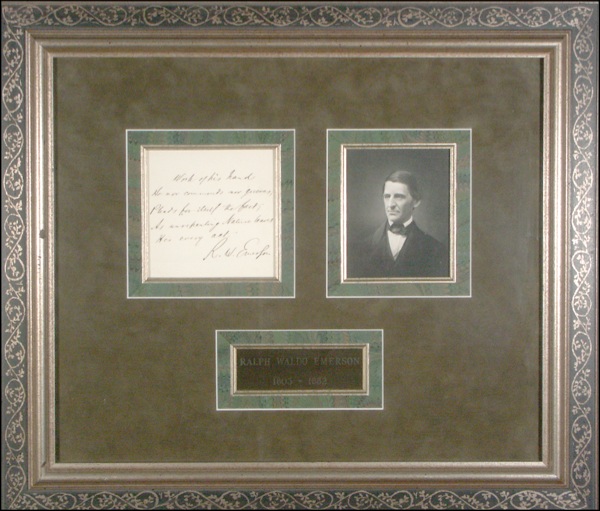 Work of his hand
He nor commends nor grieves,
Pleads for itself the fact;
As unrepenting Nature leaves
Her every act.
R. W. Emerson
RALPH WALDO EMERSON
1803 - 1882